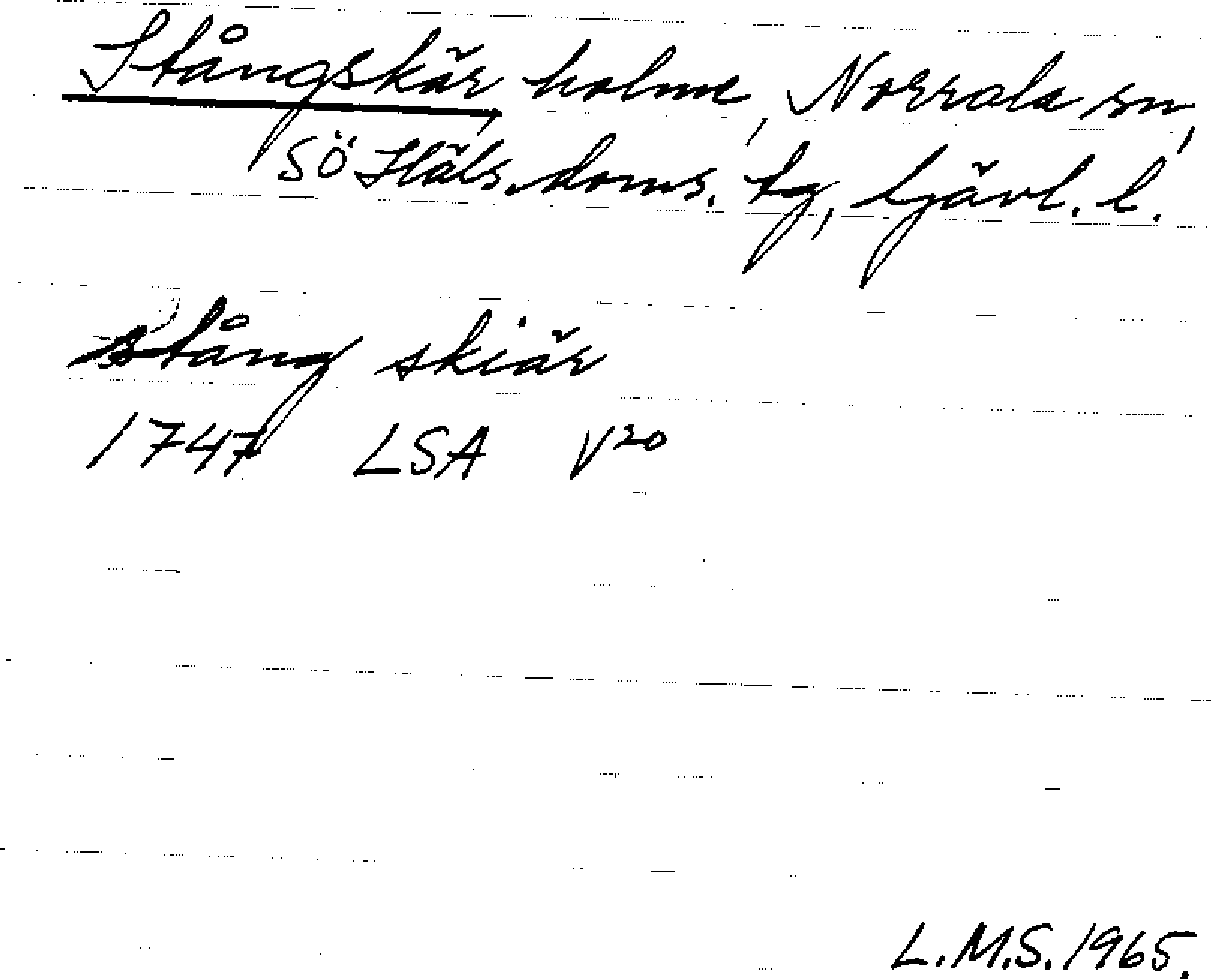 Stångskär, holme, Norrala sn,
SÖ Häls. doms. tg, Gävl. l.
stång skiär
1747 LSA V20
L.M.S. 1965.